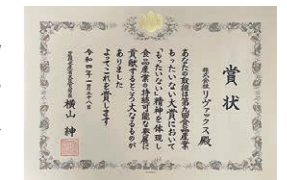 賞状
株式会社リヴァックス殿
あなたの取組は第九回食品産業
もったいない大賞において
「もったいない」精神を体現し
食品産業の持続可能な発展に
貢献するところ大なるものが
ありました
よってこれを賞します
令和四年一月二十八日
横山紳